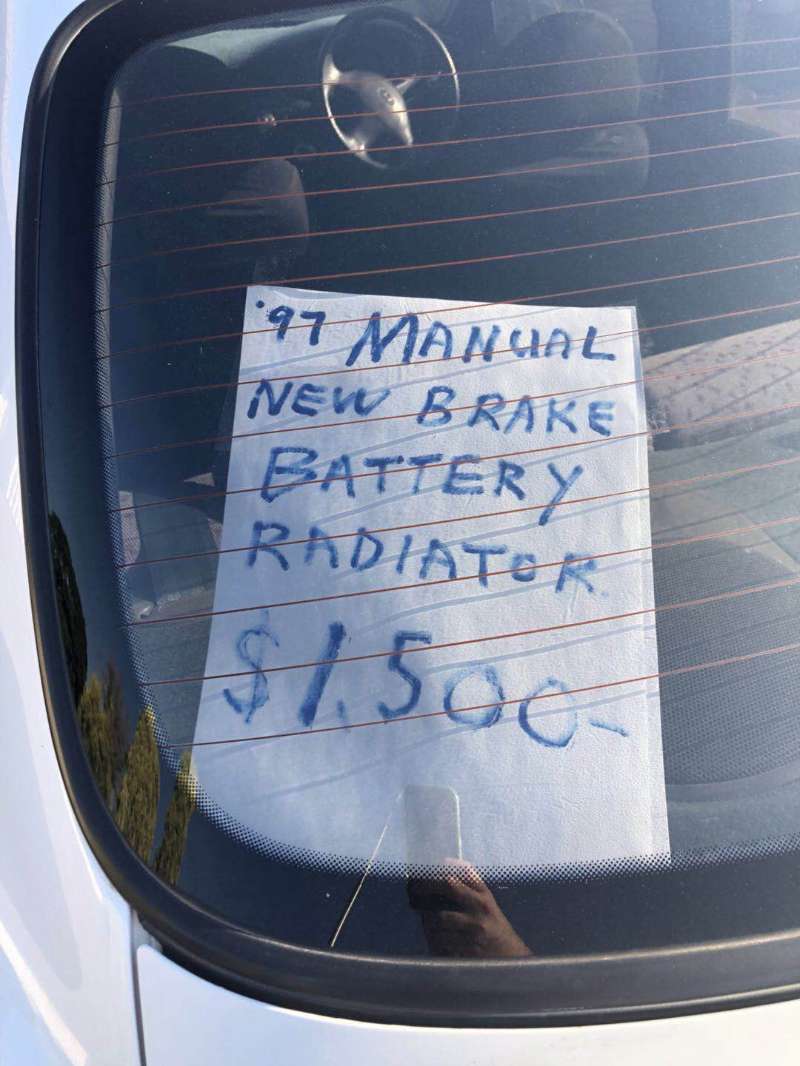 '97 MANUAL
NEW BRAKE
BATTERY
RADIATOR
$1,500-